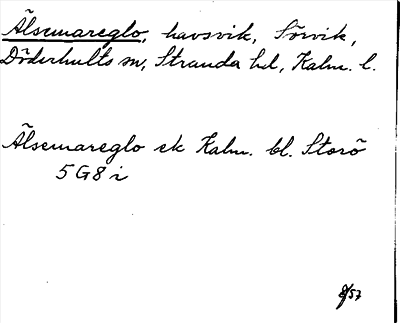 Älsemareglo, havsvik, Sörvik,
Döderhults sn, Stranda hd, Kalm. l.
Älsemareglo ek Kalm. bl. Storö
5 G 8 i
8/57